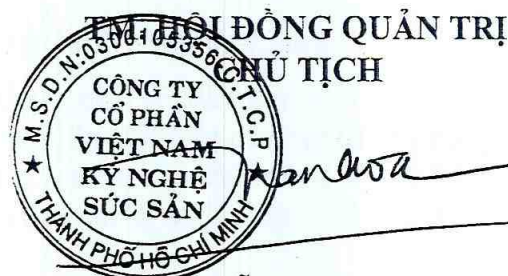 TM. HỘI ĐỒNG QUẢN TRỊ
CHỦ TỊCH
M.S.D.N:0300105356-C.T.C.P
CÔNG TY
CỔ PHẦN
VIỆT NAM
KỸ NGHỆ
SÚC SẢN
THÀNH PHỐ HỒ CHÍ MINH